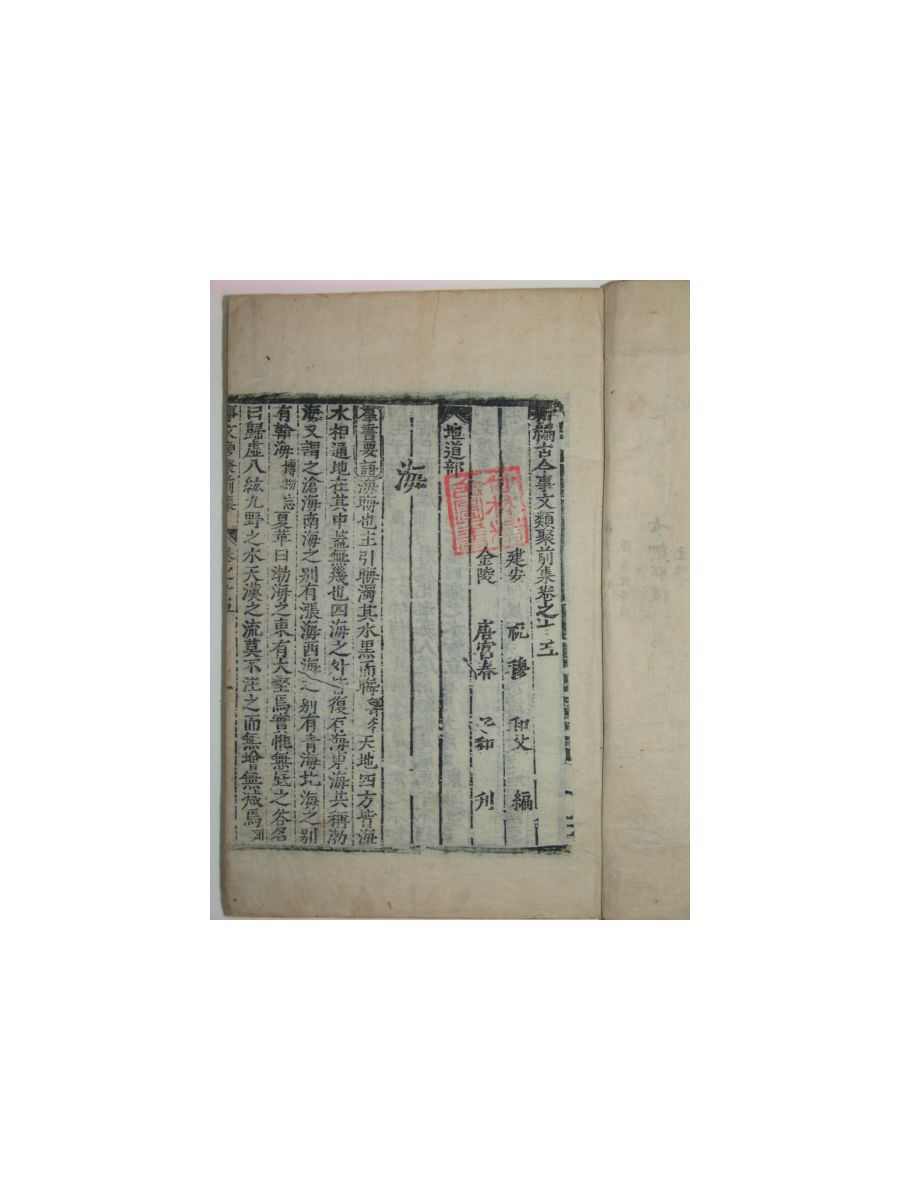 新編古今事文類聚前集卷之十五
建安 祝穆 和父 編
金陵 唐富春 子和 刊
地道部
海
羣書要語海晦也主引穢濁其水黑而晦釋名天地四方皆海
水相通地在其中蓋無幾也四海之外皆復有海東海共稱渤
海又謂之滄海南海之別有漲海西海之別有青海北海之別
有瀚海博物志夏革曰渤海之東有大壑焉實惟無底之谷名
曰歸虛八紘九野之水天漢之流莫不注之而無增無減焉列
事文類聚前集 卷之十五 一